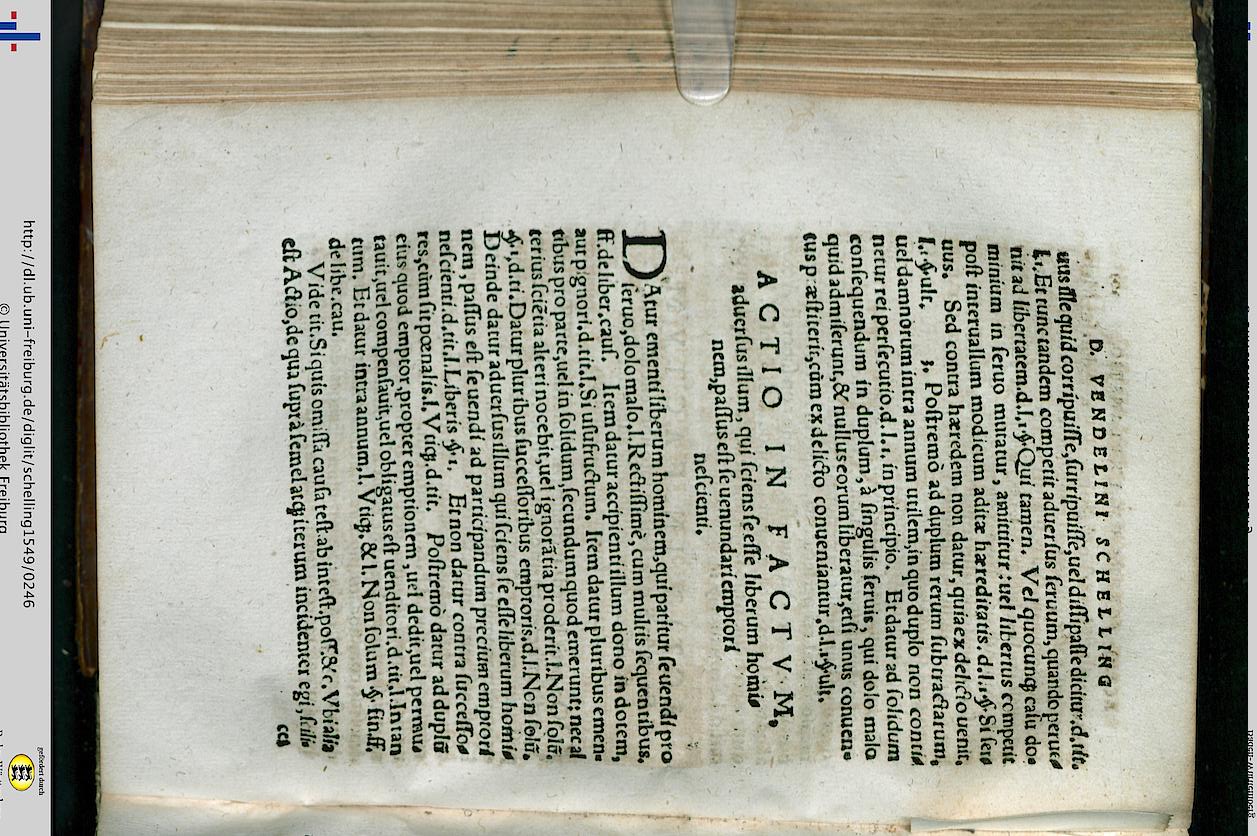 D. VENDELINI SCHELLING
uus ille quid corripuisse, surripuisse, uel dissipasse dicitur. d. tit.
l. 1. Et tunc tandem competit aduersus seruum, quando peruenit
ad libertatem. d. l. 1. §. Qui tamen. Vel quocunq; casu dominium
in seruo mutatur, amittitur: uel libertus competit
post interuallum modicum aditæ hæreditatis. d. l. 1. §. Si ser
uus. Sed contra hæredem non datur, quia ex delicto uenit.
l. 1. §. ult. 3, Postremò ad duplum rerum subtractarum,
uel damnorum intra annum utilem, in quo duplo non conti
netur rei persecutio. d. l. 1. in principio. Et datur ad solidum
consequendum in duplum, à singulis seruis, qui dolo malo
quid admiserunt, & nullus eorum liberatur, etsi unus conuene
tus præstiterit, cùm ex delicto conueniantur, d. l. 1. §. ult.
ACTIO IN FACTVM,
aduersus illum, qui sciens se esse liberum homi
nem, passus est se uenundari emptori
nescienti.
DAtur ementi liberum hominem, qui patitur se uendi pro
seruo, dolo malo. l. Rectissimè, cum multis sequentibus.
ff. de liber. caus. Item datur accipienti illum dono in dotem,
aut pignori. d. tit. l. Si usufructum. Item datur pluribus emen
tibus pro parte, uel in solidum, secundum quod emerunt: nec al
terius sciētia alteri nocebit, uel ignorātia proderit. l. Non solū.
§. 1, d. ti. Datur pluribus successoribus emptoris, d. l. Non solū.
Deinde datur aduersus illum qui sciens se esse liberum homi
nem, passus est se uendi ad participandum precium emptori
nescienti. d. tit. l. Liberis §. 1. Et non datur contra successo
res, cùm sit pœnalis. l. Vtiq;. d. tit. Postremò datur ad duplū
eius quod emptor, propter emptionem, uel dedit, uel permu
tauit, uel compensauit, uel obligatus est uenditori. d. tit. l. In tan
tum. Et datur intra annum. l. Vtiq;. & l. Non solum §. fin. ff.
de libe. cau.
Vide tit. Si quis omissa causa test. ab intest. poss. &c. Vbi alia
est Actio, de qua suprà semel atq; iterum incidenter egi, scili
cet
http://dl.ub.uni-freiburg.de/diglit/schelling1549/0246
© Universitätsbibliothek Freiburg
gefördert durch